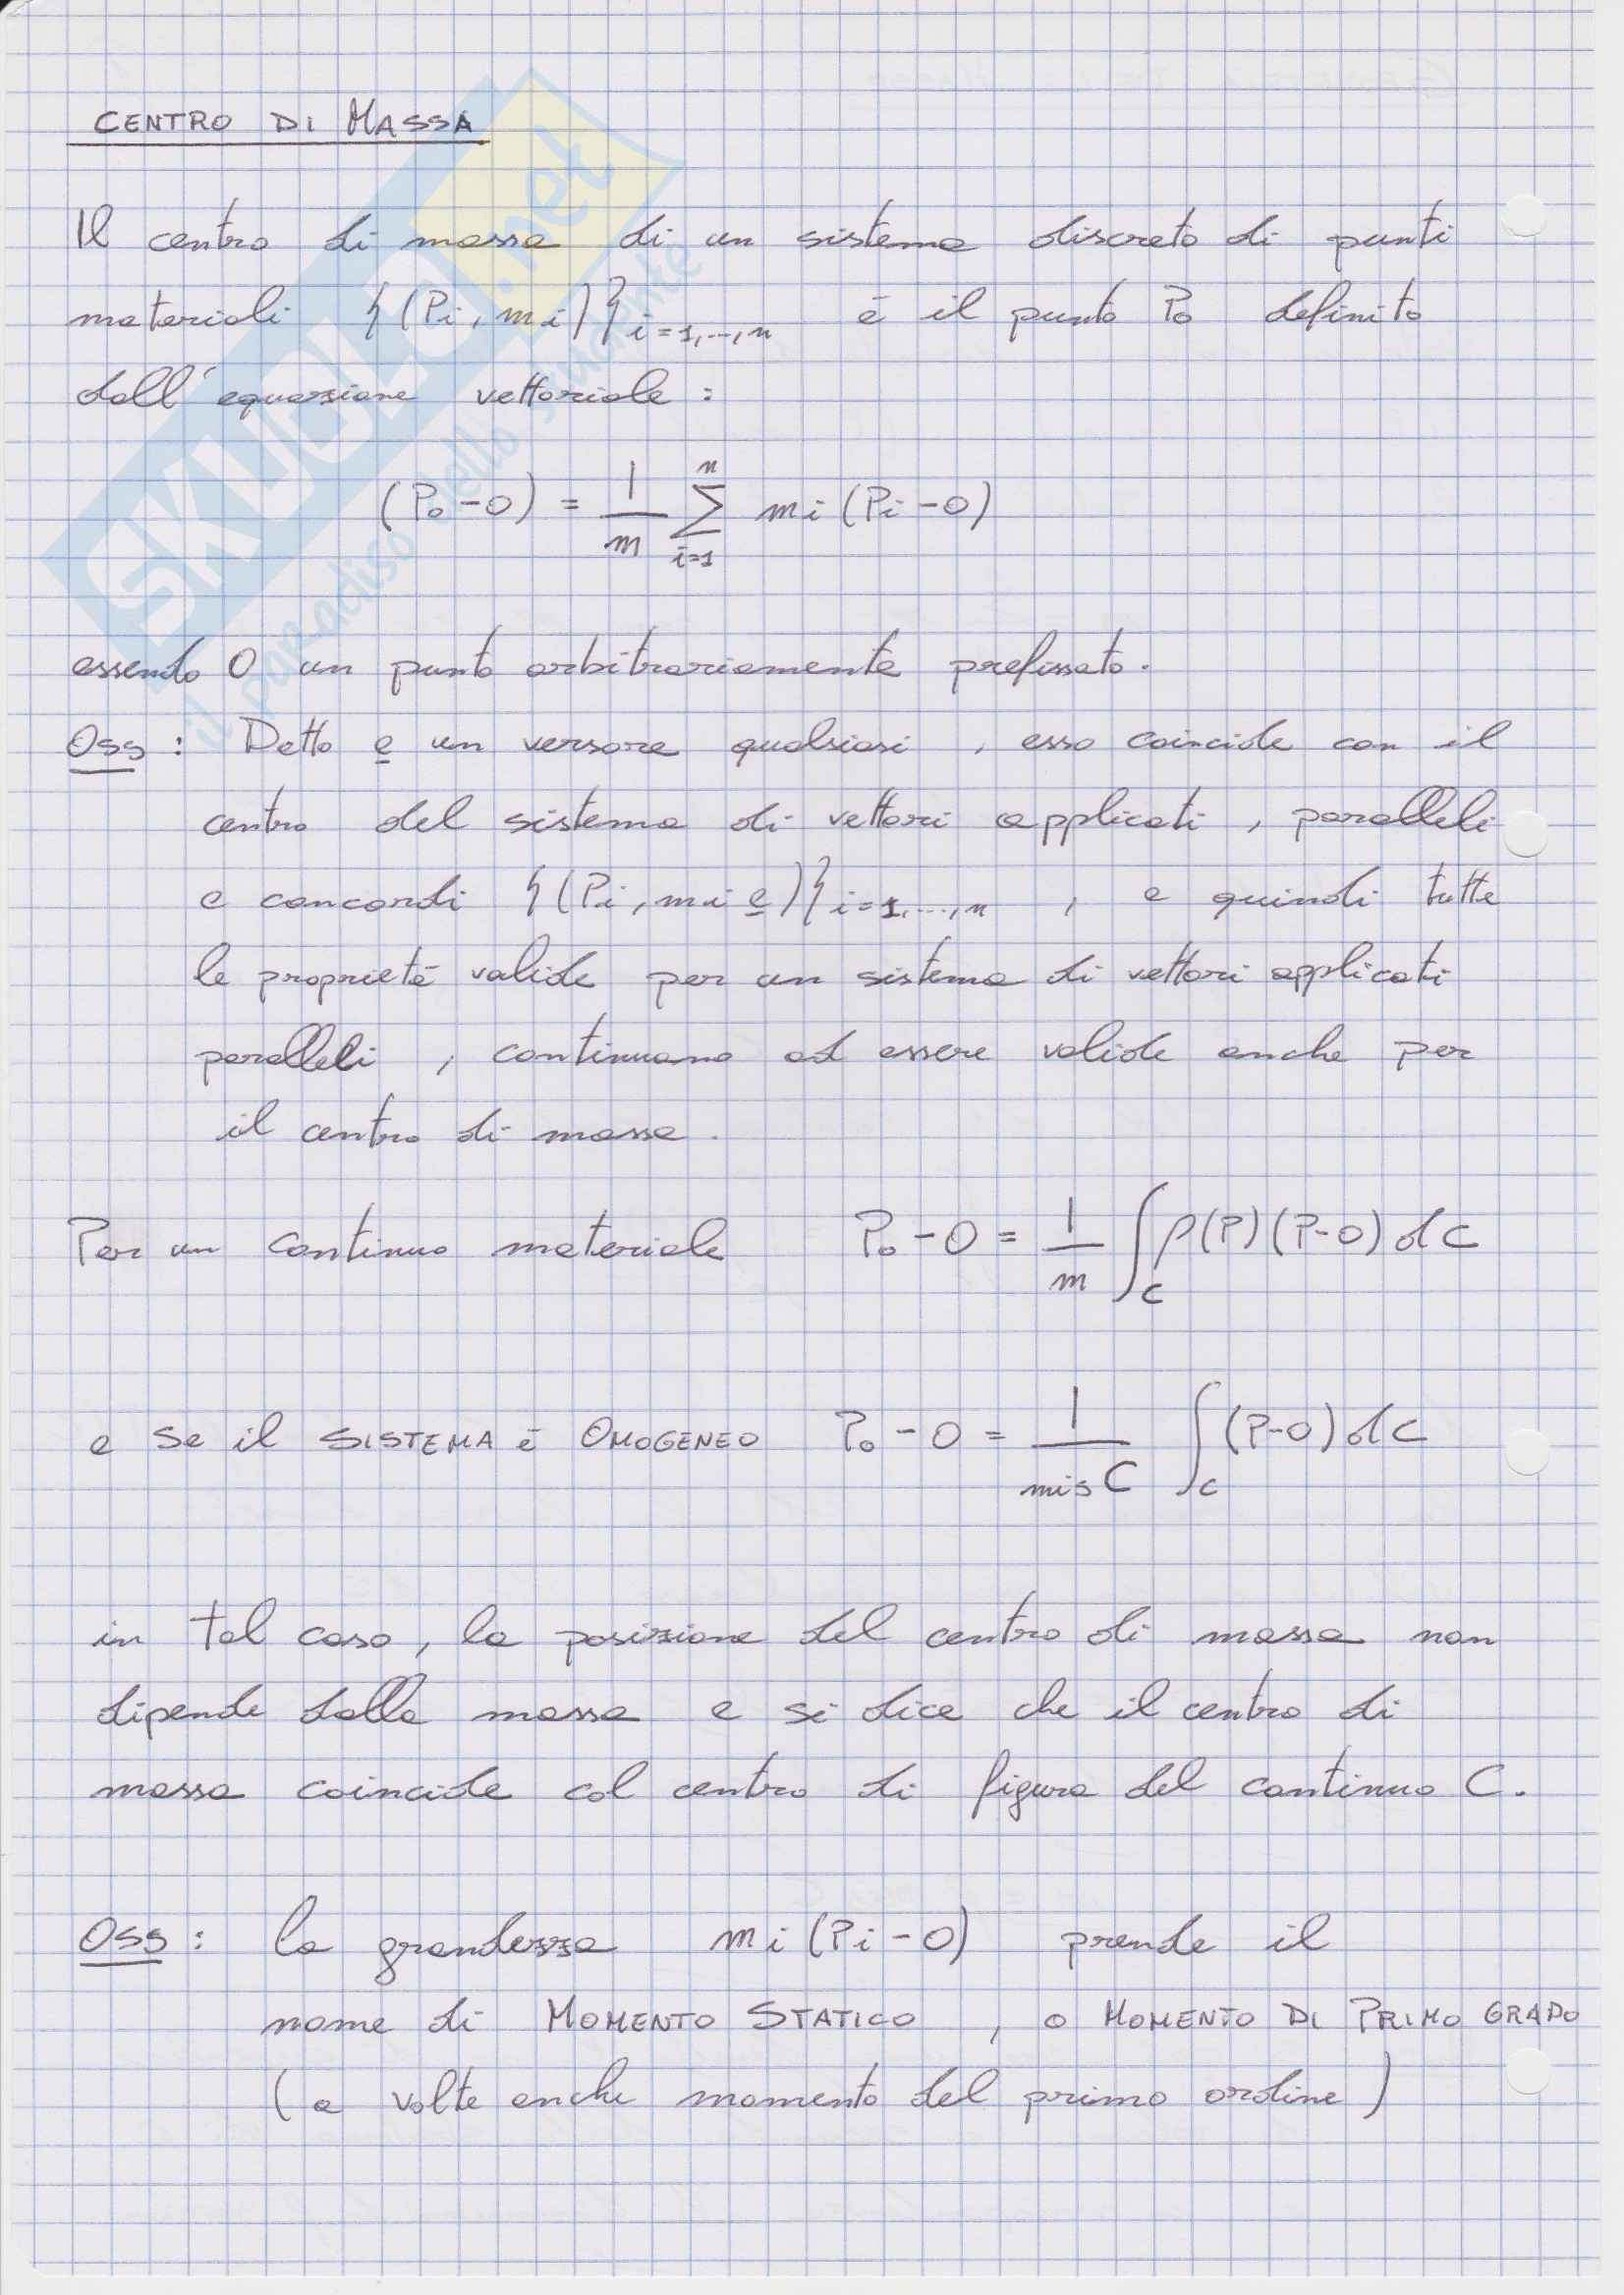 CENTRO DI MASSA
Il centro di massa di un sistema discreto di punti
materiali {(Pi, mi)}i=1,...,n è il punto P₀ definito
dall'equazione vettoriale:
(P₀-O) = 1/m ∑ⁿᵢ₌₁ mi (Pi-O)
essendo O un punto arbitrariamente prefissato.
Oss: Detto e un versore qualsiasi, esso coincide con il
centro del sistema di vettori applicati, paralleli
e concordi {(Pi, mi e)}i=1,...,n, e quindi tutte
le proprietà valide per un sistema di vettori applicati
paralleli, continuano ad essere valide anche per
il centro di massa.
Per un continuo materiale P₀-O = 1/m ∫C ρ(P)(P-O) dC
e se il SISTEMA è OMOGENEO P₀-O = 1/mis C ∫C (P-O) dC
in tal caso, la posizione del centro di massa non
dipende dalla massa e si dice che il centro di
massa coincide col centro di figura del continuo C.
Oss: la grandezza mi (Pi-O) prende il
nome di MOMENTO STATICO, o MOMENTO DI PRIMO GRADO
(a volte anche momento del primo ordine)
SKUOLA.net
il paradiso dello studente